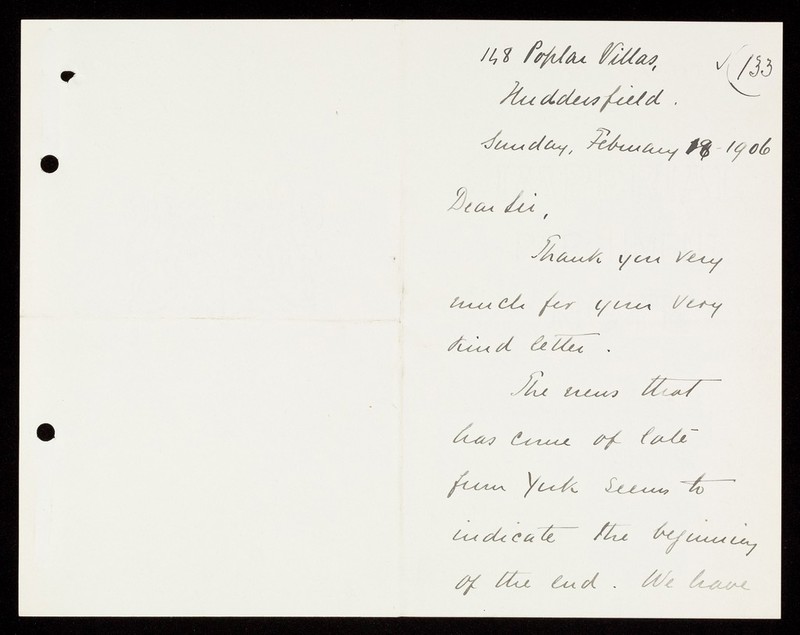 148 Poplar Villas,
✓(133
Huddersfield.
Sunday, February 18-1906
Dear Sir,
Thank you very
much for your very
kind letter.
The news that
has come of late
from York seems to
indicate the beginning
of the end. We have